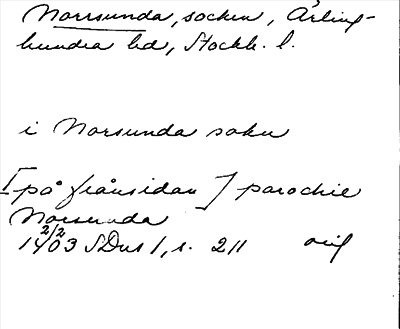 Norrsunda, socken, Ärling-
hundra hd, Stockh. l.
i Norsunda sokn
[på frånsidan] parochie
Norsunda
1403 2/2 SDns 1, s. 211 orig